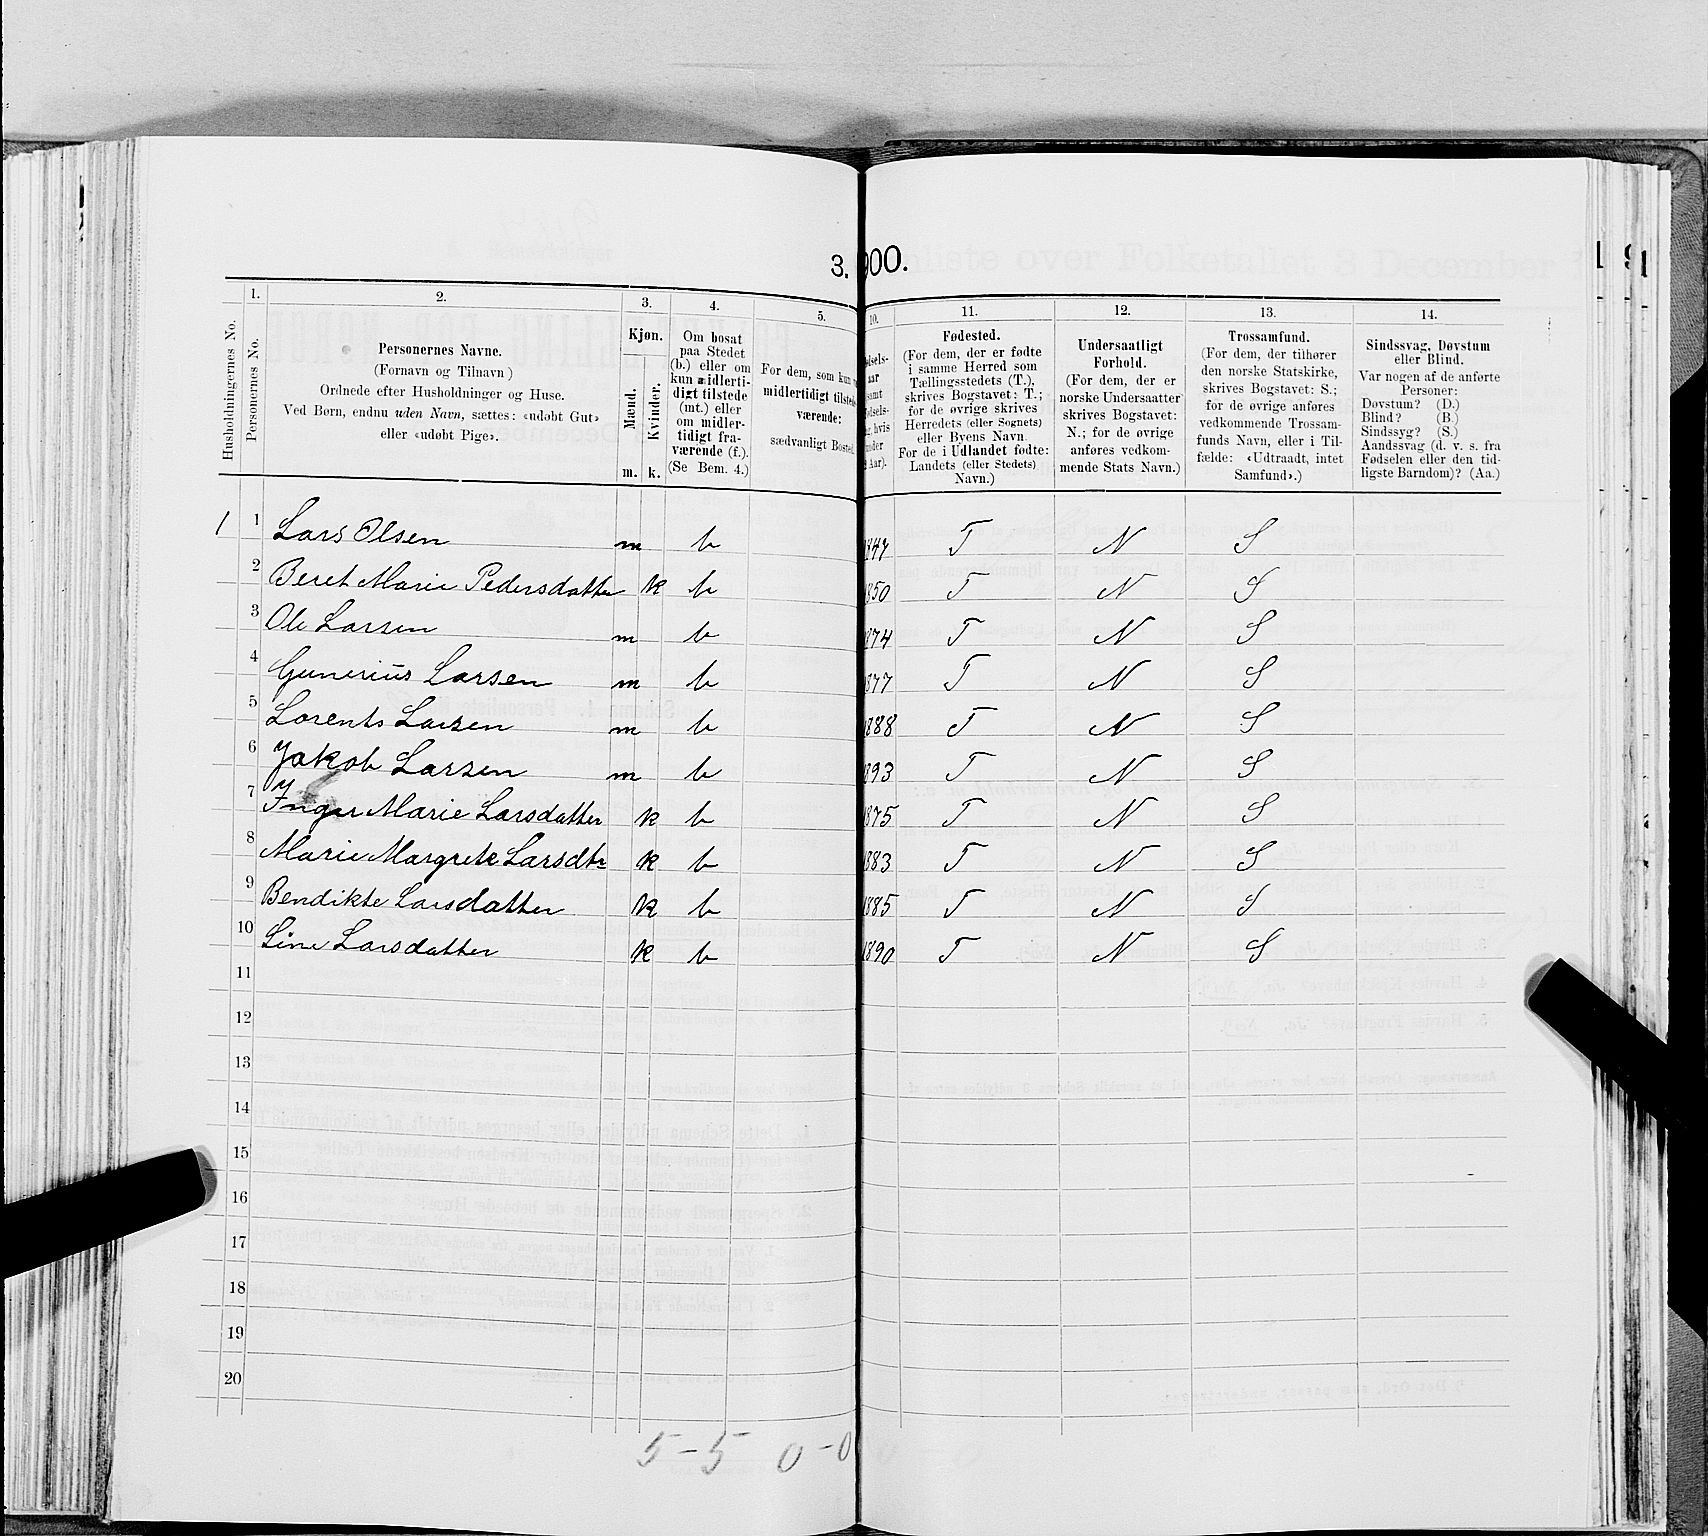 3. 900.
1. 2. 3. 4. 5.
Husholdningernes No.
Personernes No.
Personernes Navne.
(Fornavn og Tilnavn)
Ordnede efter Husholdninger og Huse.
Ved Børn, endnu uden Navn, sættes: «udøbt Gut»
eller «udøbt Pige».
Kjøn.
Mænd.
Kvinder.
m. k.
Om bosat
paa Stedet
(b.) eller om
kun midlerti-
digt tilstede
(mt.) eller
om midler-
tidigt fra-
værende (f.).
(Se Bem. 4.)
For dem, som kun
midlertidigt tilstede-
værende:
sædvanligt Bosted.
10. 11. 12. 13. 14.
dsels-
aar
samt
ødsels-
g, hvis
under
Aar).
Fødested.
(For dem, der er fødte
i samme Herred som
Tællingsstedets (T.),
skrives Bogstavet: T.;
for de øvrige skrives
Herredets (eller Sognets)
eller Byens Navn.
For de i Udlandet fødte:
Landets (eller Stedets)
Navn.)
Undersaatligt
Forhold.
(For dem, der er
norske Undersaatter
skrives Bogstavet:
N.; for de øvrige
anføres vedkom-
mende Stats Navn.)
Trossamfund.
(For dem, der tilhører
den norske Statskirke,
skrives Bogstavet: S.;
for de øvrige anføres
vedkommende Trossam-
funds Navn, eller i Til-
fælde: «Udtraadt, intet
Samfund».)
Sindssvag, Døvstum
eller Blind.
Var nogen af de anførte
Personer:
Døvstum? (D.)
Blind? (B.)
Sindssyg? (S.)
Aandssvag (d. v. s. fra
Fødselen eller den tid-
ligste Barndom)? (Aa.)
1 1 Lars Olsen m b 1847 T N S
2 Beret Marie Pedersdatter k b 1850 T N S
3 Ole Larsen m b 1874 T N S
4 Gunerius Larsen m b 1877 T N S
5 Lorents Larsen m b 1888 T N S
6 Jakob Larsen m b 1893 T N S
7 Inger Marie Larsdatter k b 1875 T N S
8 Marie Margrete Larsdtr k b 1883 T N S
9 Bendikte Larsdatter k b 1885 T N S
10 Line Larsdatter k b 1890 T N S
11
12
13
14
15
16
17
18
19
20
5 - 5 0 - 0